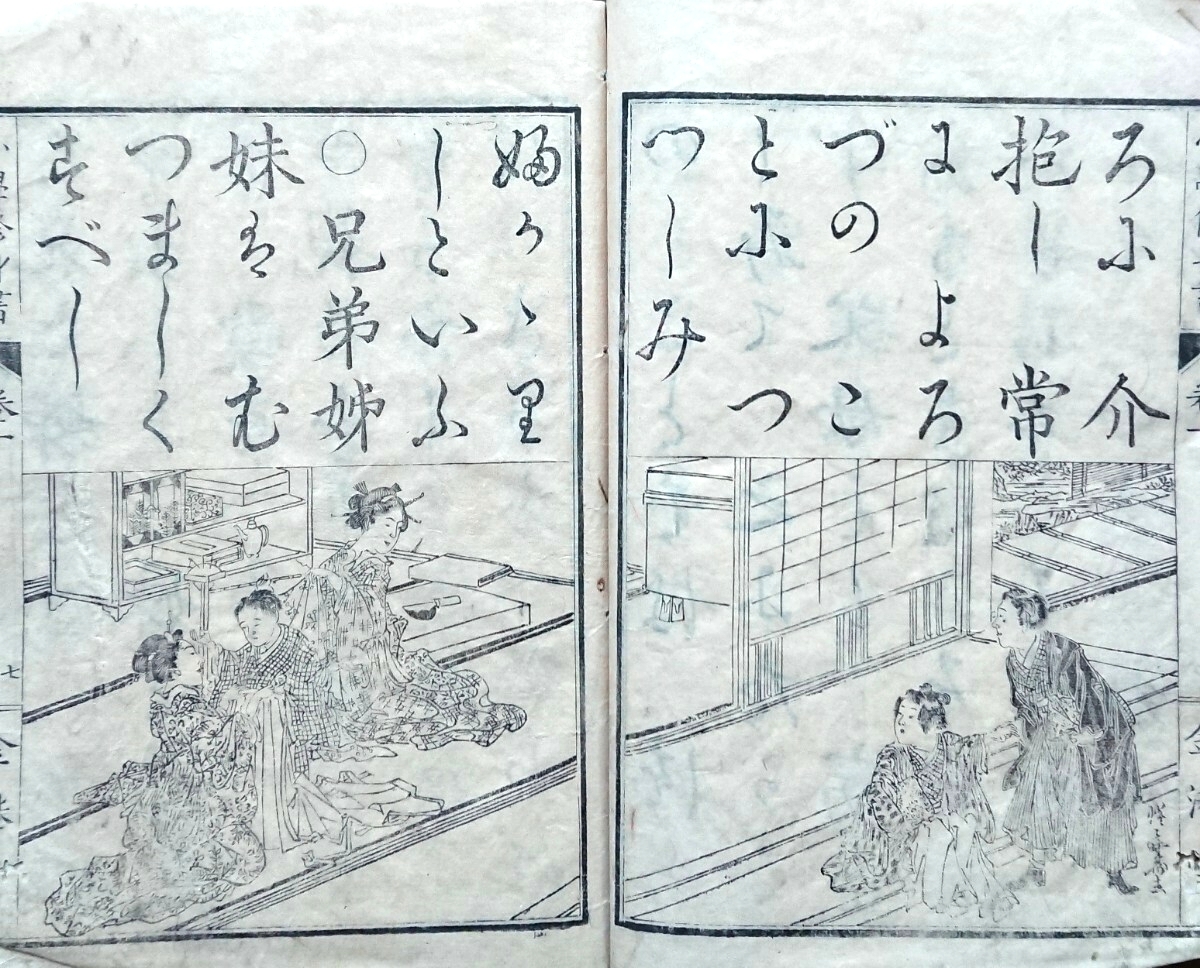 ろに介
抱し常
によろ
づのこ
とにつ
つしみ
婦かゝ里
しといふ
○兄弟姊
妹はむ
つましく
すべし
七